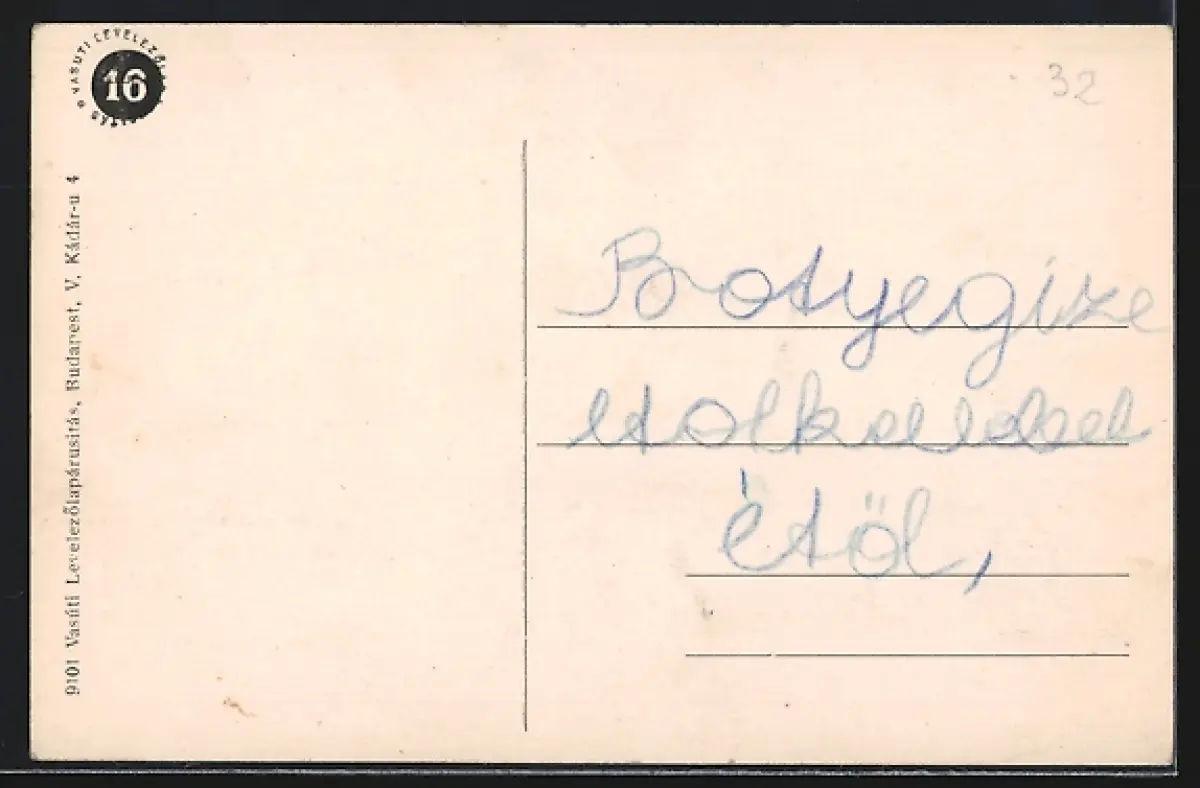 VASUTI LEVELEZŐLA
16
32
9101 Vasúti Levelezőlapárusitás, Budapest, V. Kádár-u 4
Botyegize
étöl,